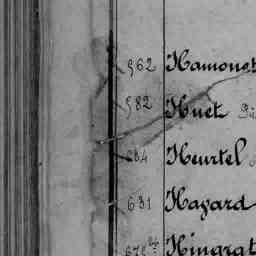 562 Hamonet
582 Huet
684 Heurtel
631 Hayard
Hingrat